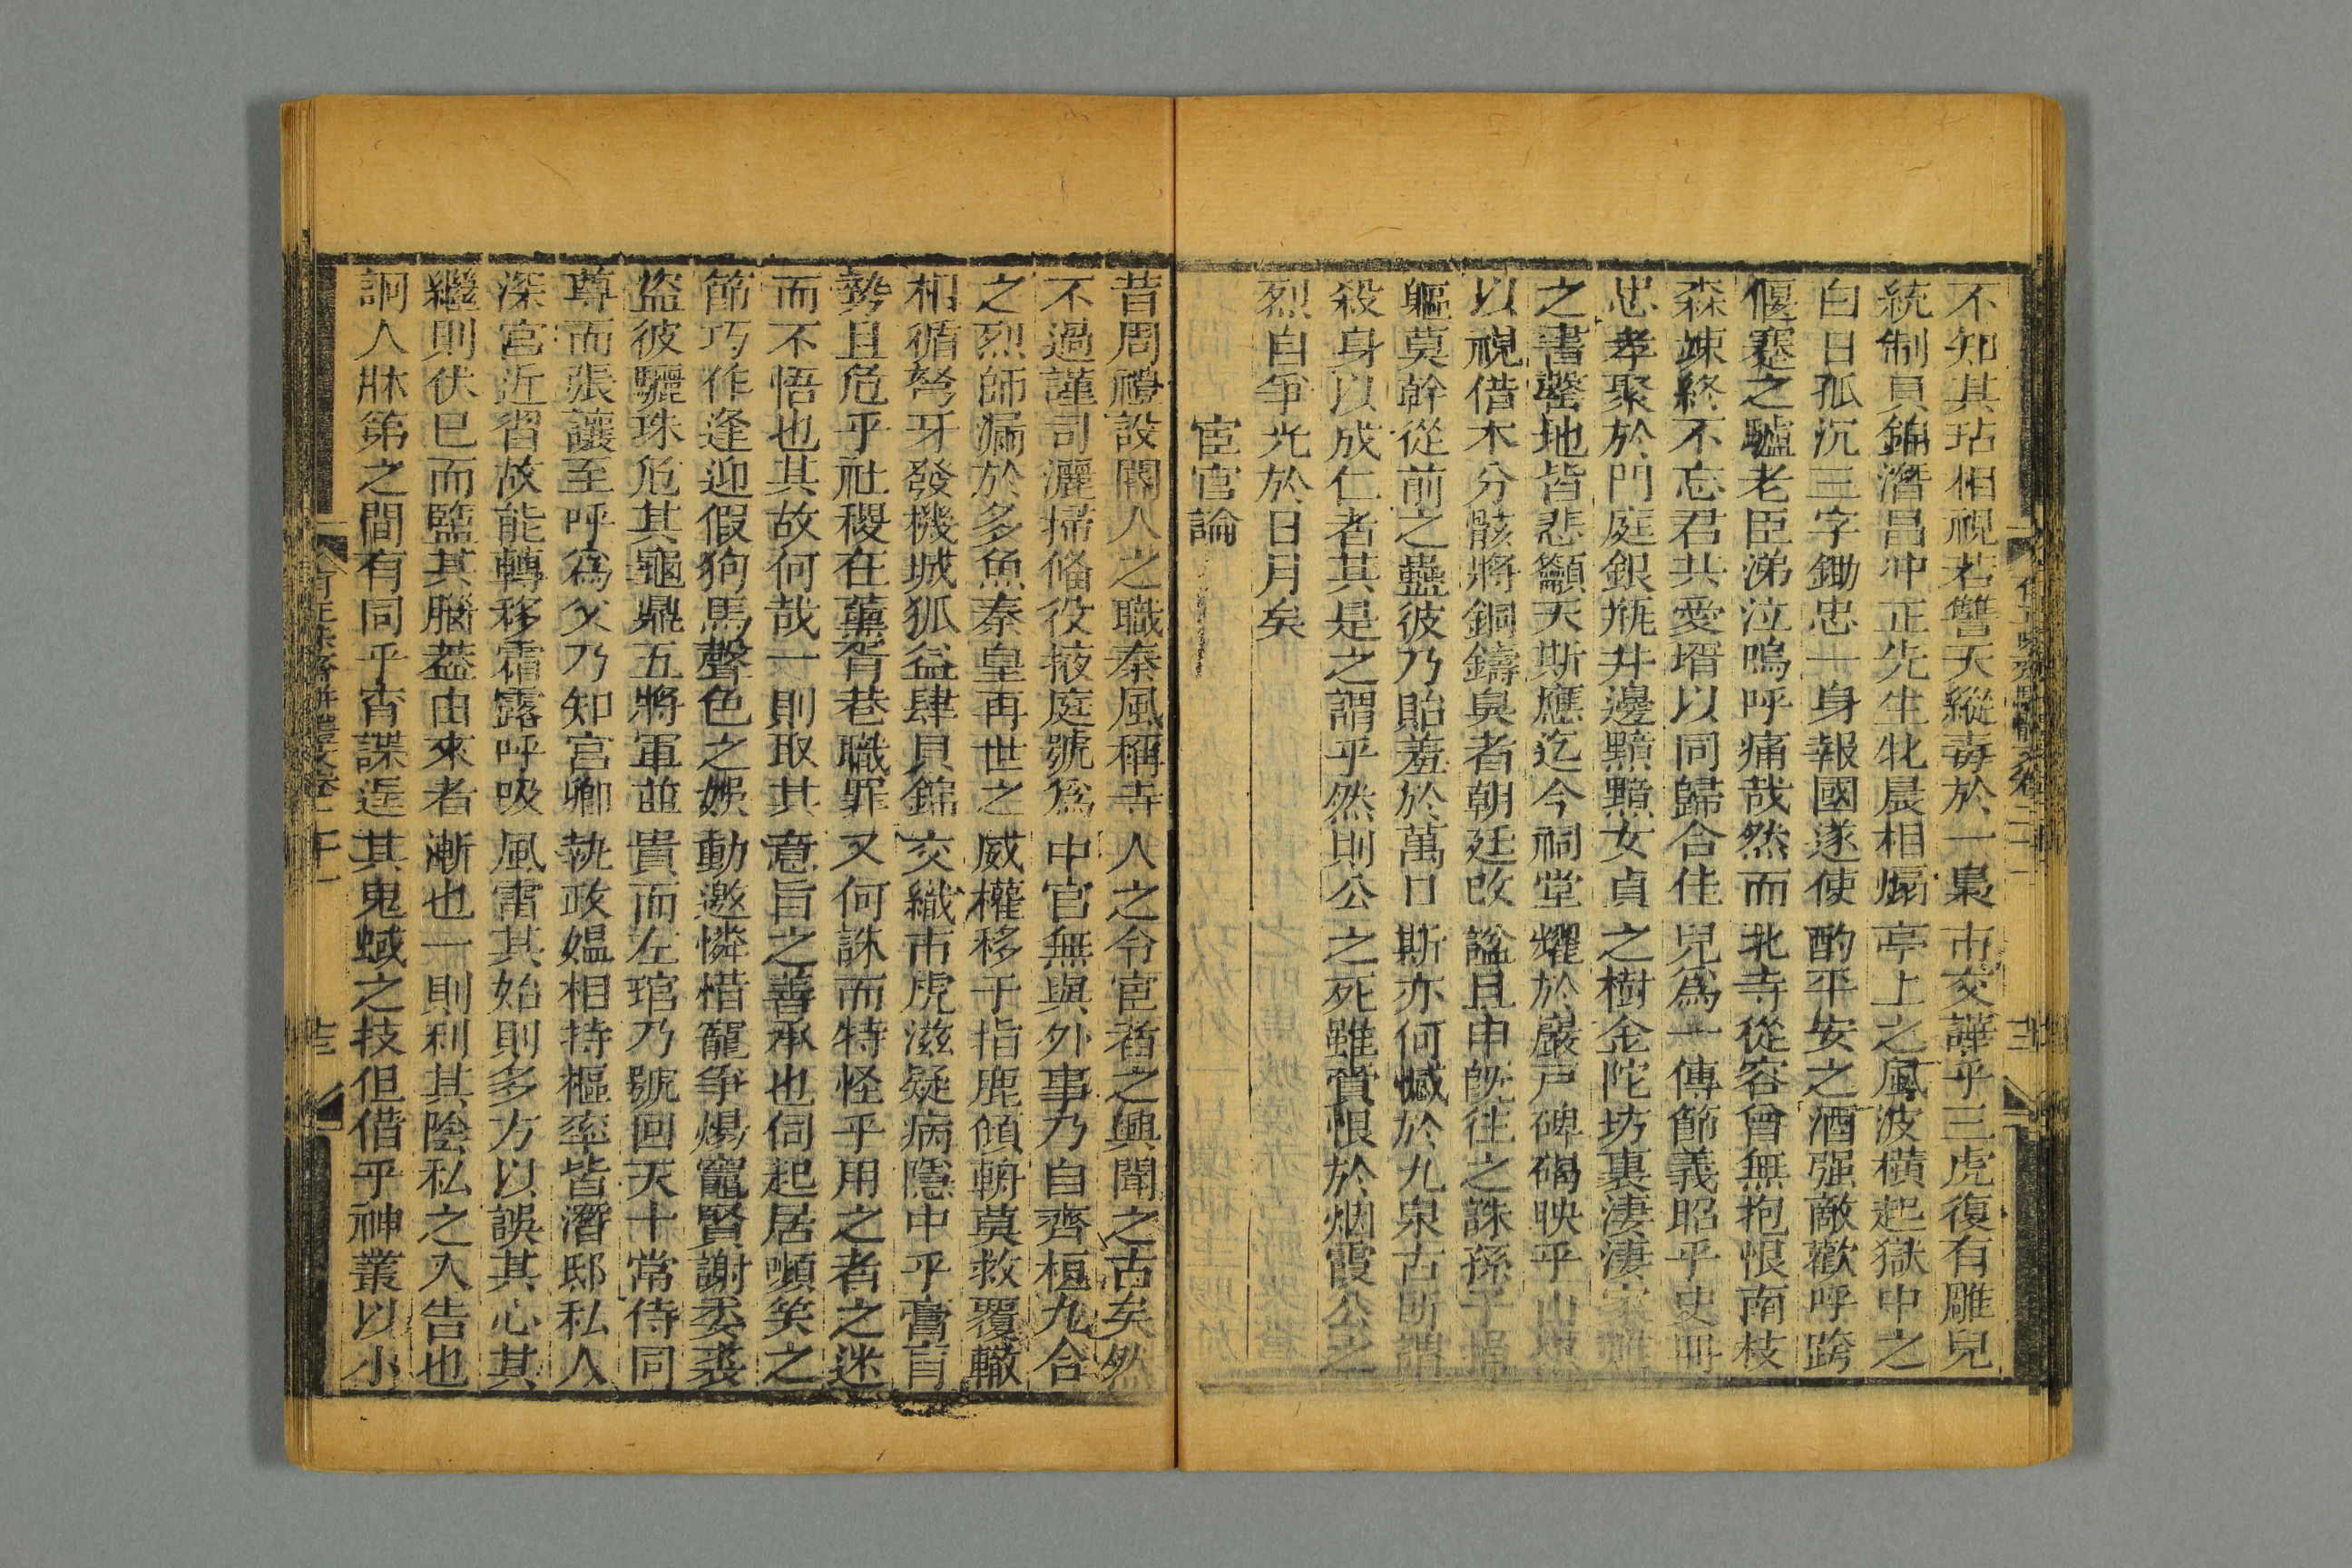 不知其玷相視若讐天縱毒於一梟市交譁乎三虎復有雕兒
統制員錦潛昌冲正先生牝晨相煽亭上之風波橫起獄中之
白日孤沉三字鋤忠一身報國遂使酌平安之酒强敵歡呼跨
偃蹇之驢老臣涕泣嗚呼痛哉然而北寺從容曾無抱恨南枝
森竦終不忘君共愛壻以同歸合佳兒爲一傳節義昭乎史冊
忠孝聚於門庭銀瓶井邊黯黯女貞之樹金陀坊裏淒淒家
之書罄地皆悲籲天斯應迄今祠堂耀於巖戸碑碣映乎山
以視借木分骸將銅鑄臭者朝廷改諡且申旣往之誅孫子
軀莫幹從前之蠱彼乃貽羞於萬口斯亦何憾於九泉古所謂
殺身以成仁者其是之謂乎然則公之死雖賫恨於烟霞公之
烈自爭光於日月矣
宦官論
昔周禮設閽人之職秦風稱寺人之令宦者之興聞之古矣然
不過謹司灑掃俻役掖庭號爲中官無與外事乃自齊桓九合
之烈師漏於多魚秦皇再世之威權移于指鹿傾輈莫救覆轍
相循弩牙發機城狐益肆貝錦交織市虎滋疑病隱中乎膏肓
勢且危乎社稷在薰胥巷職罪又何誅而特怪乎用之者之迷
而不悟也其故何哉一則取其意旨之善承也伺起居嚬笑之
節巧作逢迎假狗馬聲色之娛動邀憐惜寵爭煬竈賢謝委裘
盜彼驪珠危其龜鼎五將軍並貴而左琯乃號回天十常侍同
尊而張讓至呼爲父乃知宮卿執政媪相持樞率皆潛邸私人
深宮近習故能轉移霜露呼吸風雷其始則多方以誤其心其
繼則伏巳而盬其腦葢由來者漸也一則利其陰私之入告也
詗人牀笫之間有同乎宵諜逞其鬼蜮之技但借乎神叢以小